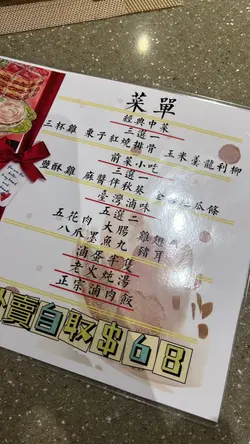 菜單
經典中菜
三選一
三杯雞 栗子紅燒排骨 玉米羹龍利柳
前菜小吃
三選一
鹽酥雞 麻醬伴秋葵 瓜條
臺灣滷味
五選二
五花肉 大腸 雞翅
八爪墨魚丸 豬耳
滷蛋半隻
老火燉湯
正宗滷肉飯
外賣自取$68